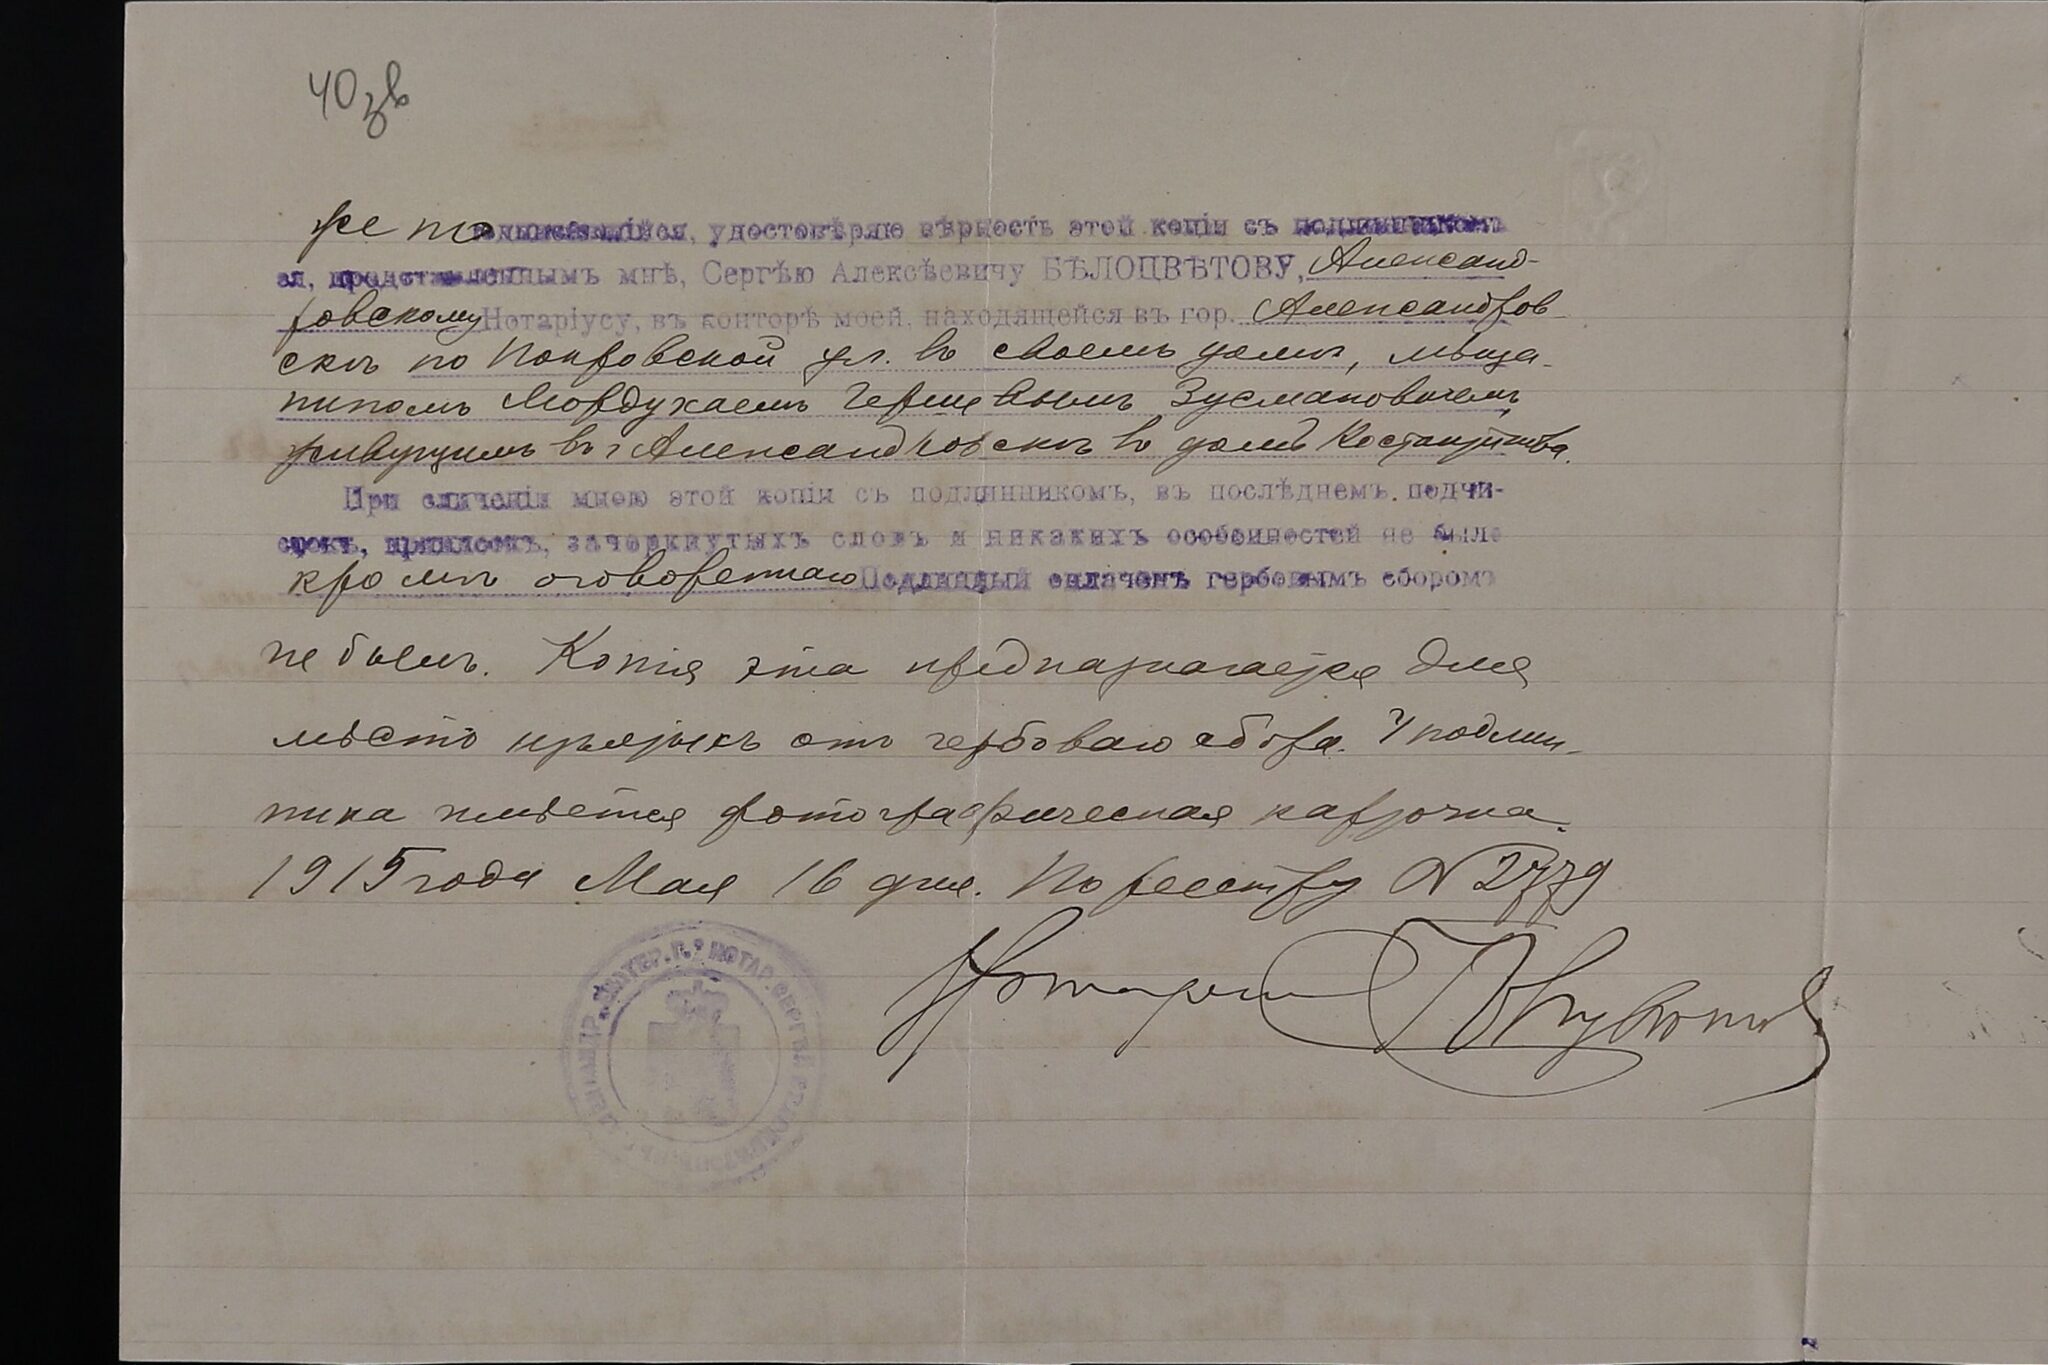 40 зв
же подписавшійся, удостовѣряю вѣрность этой копіи съ подлинникомъ
ея, представленнымъ мнѣ, Сергѣю Алексѣевичу БѢЛОЦВѢТОВУ, Александ-
ровскому Нотаріусу, въ конторѣ моей, находящейся въ гор. Александров
скѣ по Покровской ул. въ своемъ домѣ, мѣща-
ниномъ Мордухаемъ Гершевымъ Зусмановичемъ,
живущимъ въ г Александровскѣ въ домѣ
При сличеніи мною этой копіи съ подлинникомъ, въ послѣднемъ подчи-
стокъ, приписокъ, зачеркнутыхъ словъ и никакихъ особенностей не было
кромѣ оговореннаго Подлинный оплаченъ гербовымъ сборомъ
не былъ. Копія эта предназначается для
мѣстъ изъятыхъ отъ гербоваго сбора. У подлин-
ника имѣется фотографическая карточка.
1915 года Мая 16 дня. По реестру № 2779
Нотаріусъ
НОТАР. СЕРГѢЙ